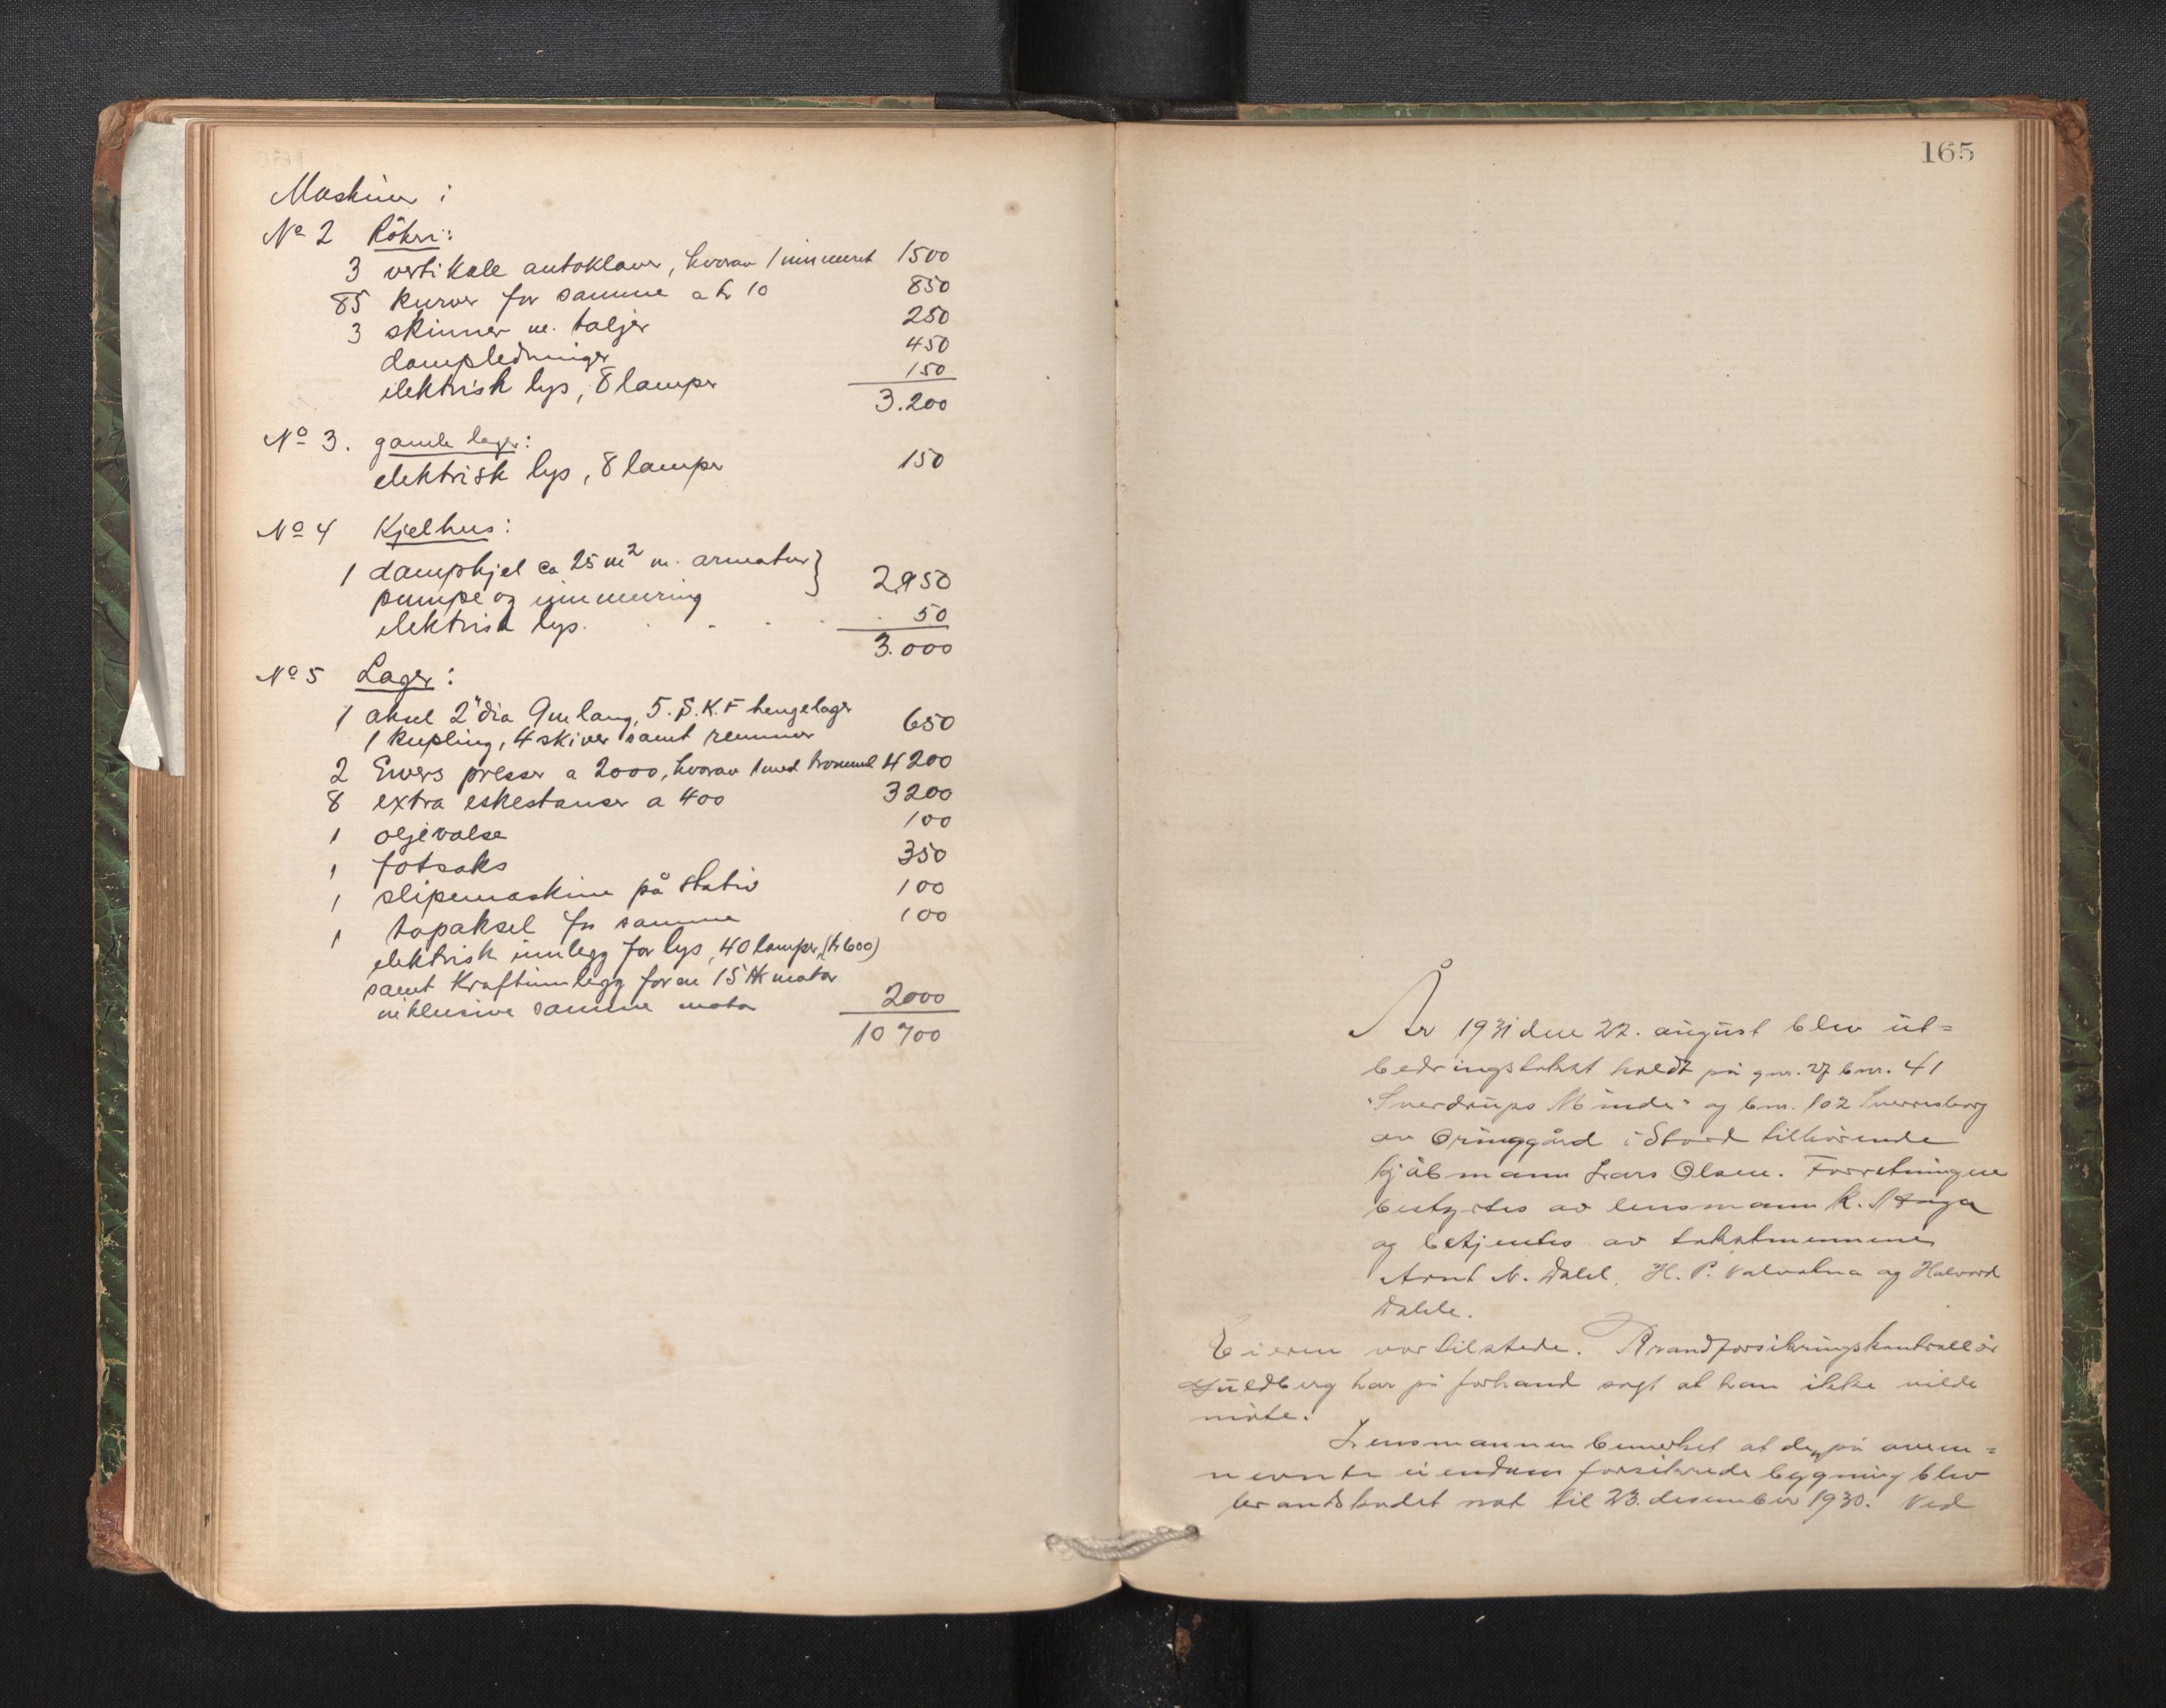 Maskiner i
No 2 Rökeri:
3 vertikale autoklaver, hvorav 1 innmuret 1500
85 kurver for samme a kr 10 850
3 skinner m. taljer 250
dampledninger 450
elektrisk lys, 8 lamper 150
3.200
No 3. gamle lager:
elektrisk lys, 8 lamper 150
No 4 Kjelhus:
1 dampkjel ca 25 m2 m. armatur }
pumpe og innmuring 2,950
elektrisk lys. . . . . . 50
3.000
No 5 Lager:
1 aksel 2" dia 9 m lang, 5. S.K.F hengelager
1 kupling, 4 skiver samt remmer 650
2 Ewers presser a 2000, hvorav 1 med trommel 4200
8 extra eskestanser a 400 3200
1 oljevalse 100
1 fotsaks 350
1 slipemaskine på stativ 100
1 topaksel for samme 100
elektrisk innlegg for lys, 40 lamper, (kr 600)
samt kraftinnlegg for en 15 Hk motor
inklusive samme motor 2000
10 700
165
År 1931 den 22. august blev ut=
bedringstakst holdt på gnr. 27 bnr. 41
"Sverdrups Minde" og bnr. 102 Sverresborg
av gård i Stord tilhörende
kjöbmann Lars Olsen. Forretningen
bestyrtes av lensmann K.
og betjentes av takstmennene
Arnt N. Dale, H. P. Valvatna og Halvord
Dahle.
Eieren var tilstede. Brandforsikringskontrollör
Guldberg har på forhand sagt at han ikke vilde
möte.
Lensmannen bemerket at den på oven=
nevnte eiendom forsikrede bygning blev
brandskadet nat til 23. desember 1930. Ved